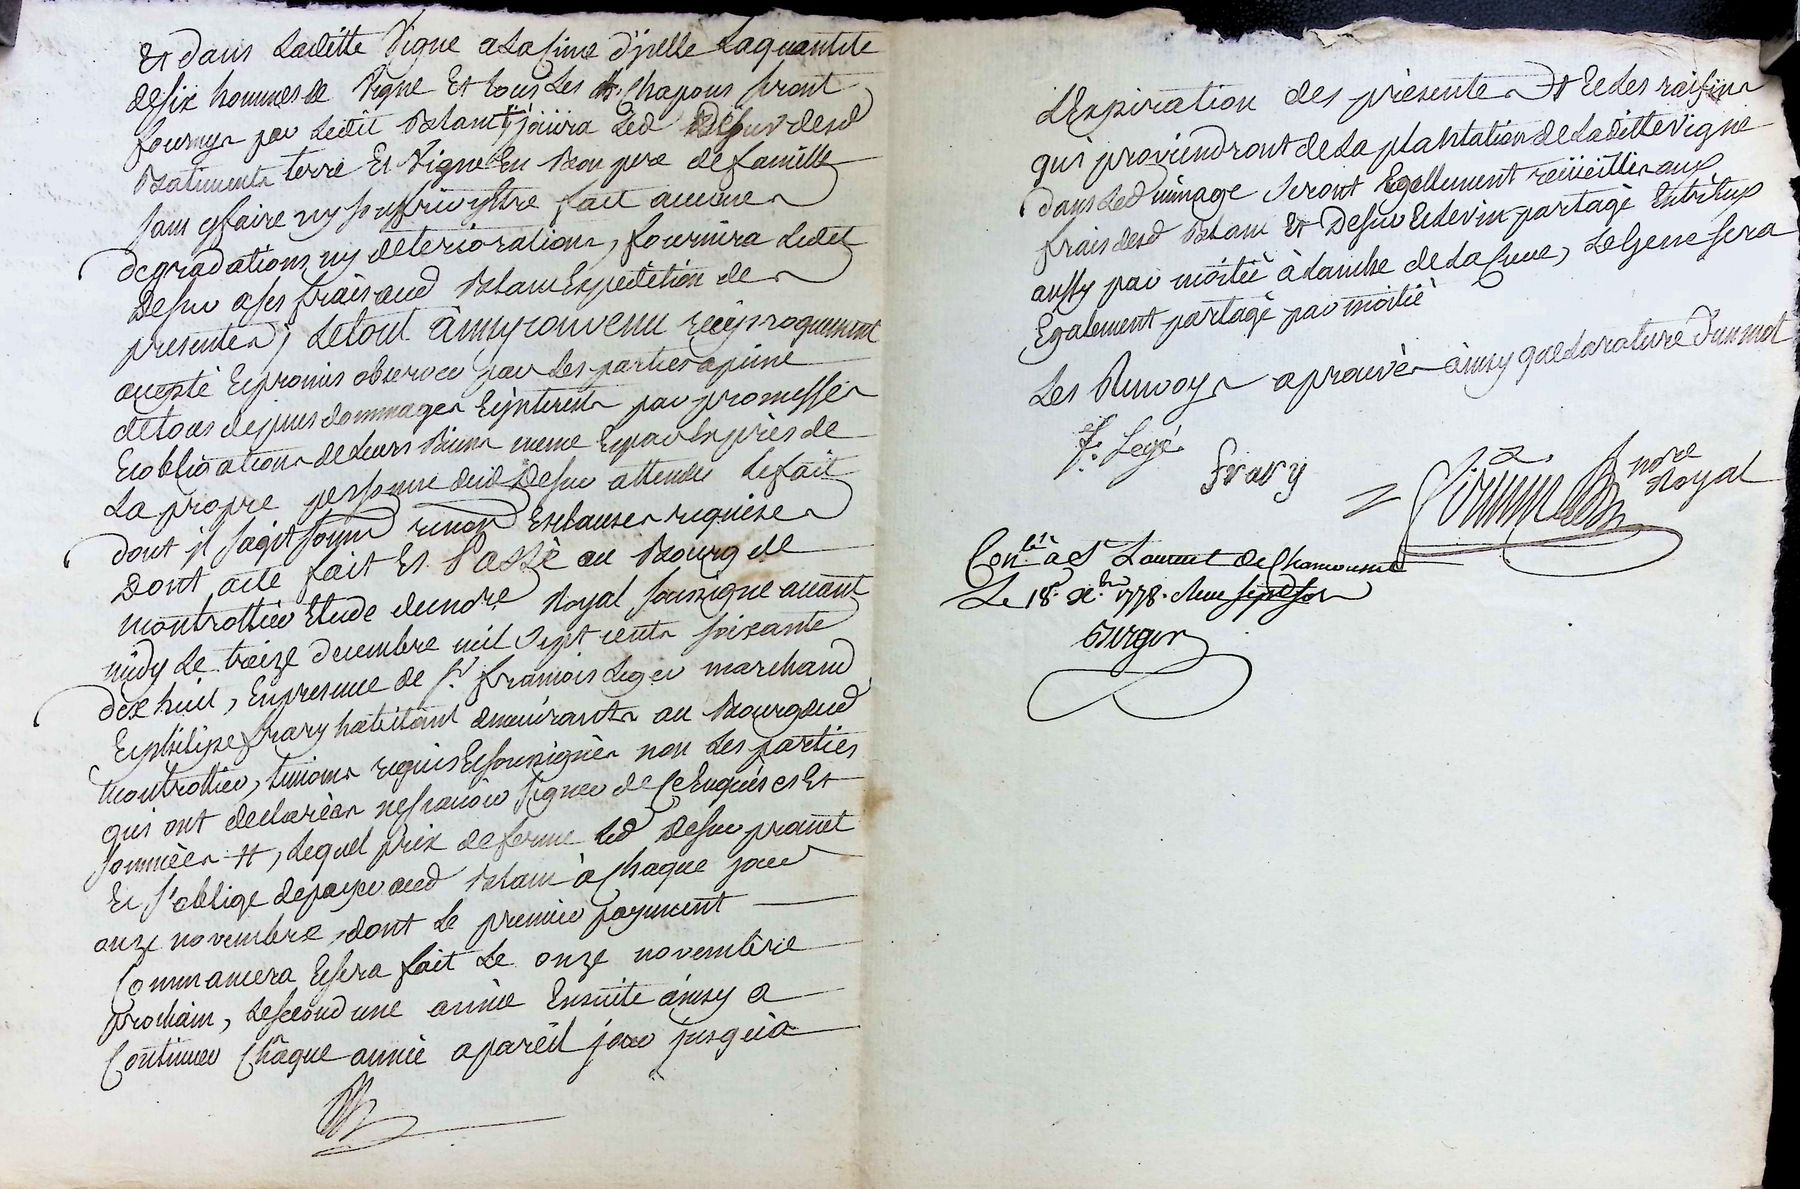 Et dans Laditte Vigne a La Cime d'jcelle La quantite
desix hommes de Vigne Et tous Les Chapons seront
fournys par Ledit Blanc jouira Led Desuc desd
Batiments terre Et Vigne En Bon pere de famille
sans y faire ny souffrir y Etre fait aucunes
degradations ny deteriorations, fournira Ledit
Desuc a ses frais aud Blanc Expedition de
presentes, Le tout äinsy convenu reciproquement
accepté Et promis observer par Les parties a peine
de tous depens dommages Et jnterests par promesses
Et obligations de Leurs Biens meme Et par Exprès de
La propre personne dud Desuc attendu Le fait
dont jl sagit soumon renon Et clauses requises
Dont acte fait Et Passé au Bourg de
montrottier Etude du nore Royal soussigné avant
midy Le treize decembre mil sept cents soixante
dix huit, En presence de sr. francois Leger marchand
Et philipe frary habittant demeurants au Bourg dud
montrottier, temoins requis Et soussignés non Les parties
qui ont declarées ne scavoir signer de ce Enquises Et
sommées #, Lequel prix de ferme Led Desuc promet
Et s'oblige de payer aud Blanc à chaque jour
onze novembre, dont Le premier payement
Commancera Et sera fait Le onze novembre
prochain, Le second une année Ensuite äinsy a
Continuer Châque année a pareil jour jusqu'a
L'Expiration des presentes # Et Les raisins
qui proviendront de La plantation de La ditte Vigne
dans Led vinage seront Egallement recüeillis aux
frais desd Blanc Et Desuc Et Le vin partagé Entr'Eux
aussy par möitié à Lanche de La Cuve, Le Gene sera
Egalement partagé par moitié
Les Renvoys aprouvés äinsy que La rature d'un mot
f. Legé
frary
nore
Royal
Conlé. a St Laurent de Chamousset
Le 18. Xbre 1778.